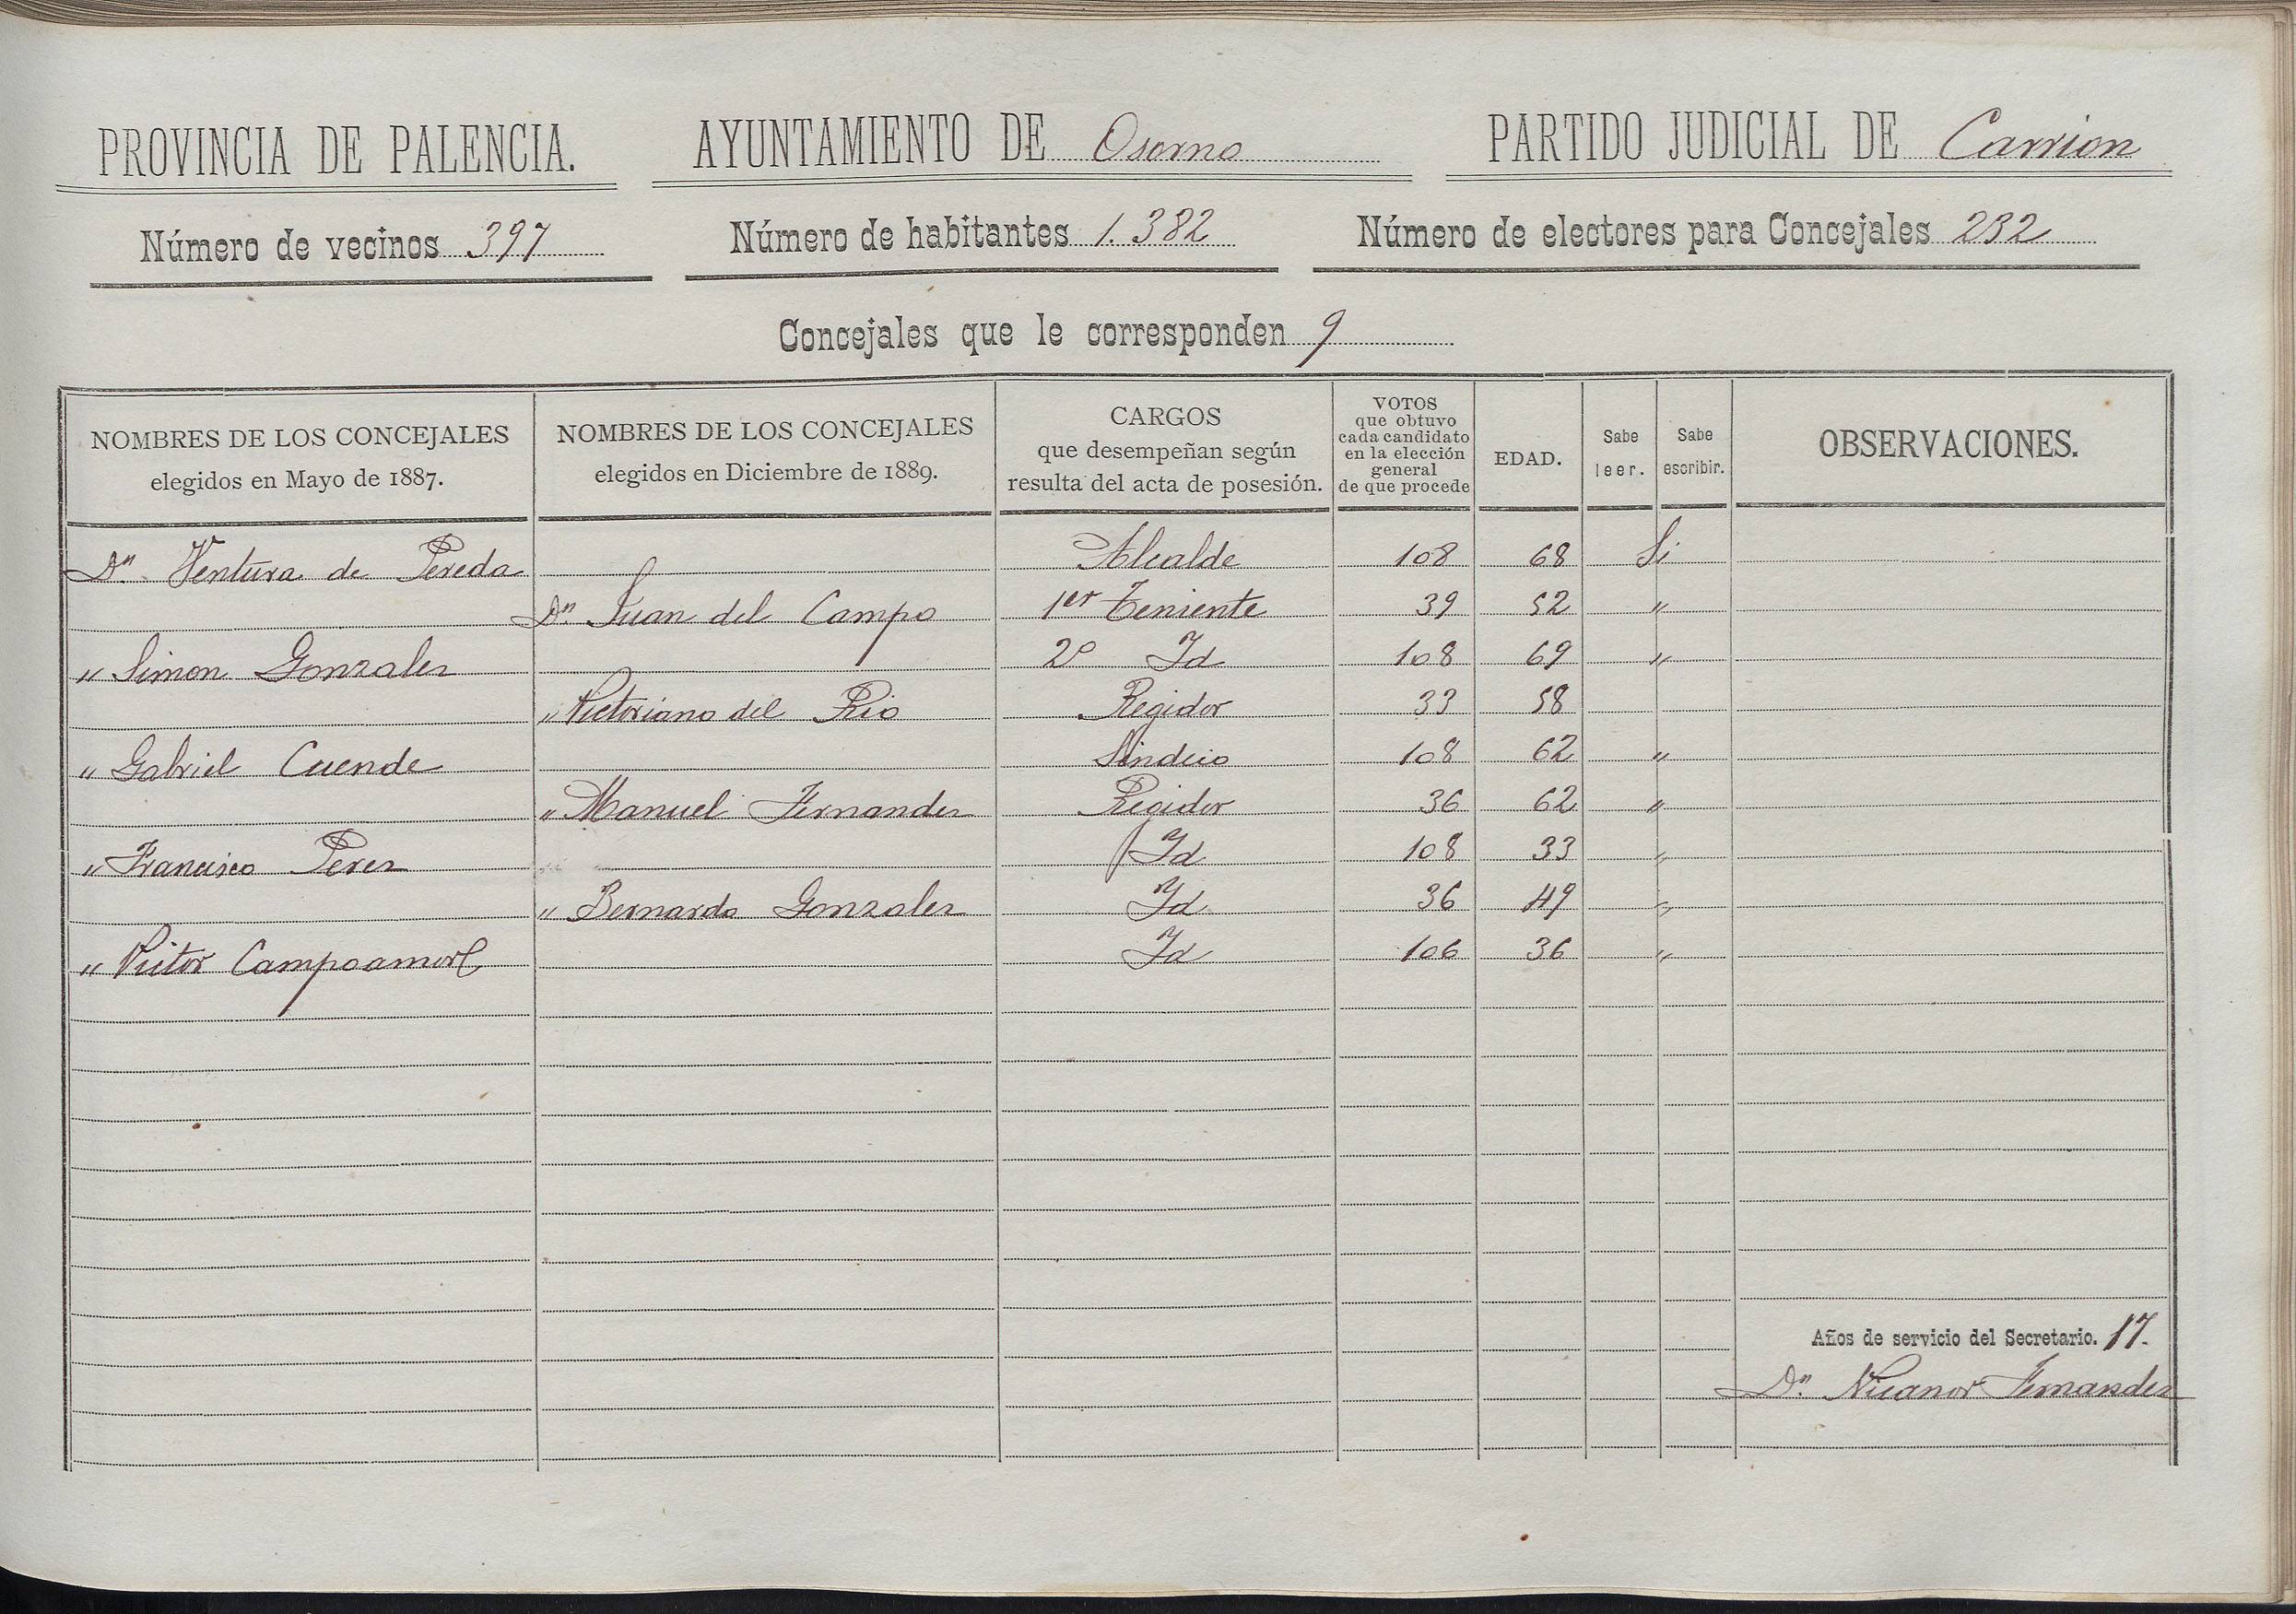 PROVINCIA DE PALENCIA. AYUNTAMIENTO DE Osorno PARTIDO JUDICIAL DE Carrion
Número de vecinos 397 Número de habitantes 1.382 Número de electores para Concejales 232
Concejales que le corresponden 9
NOMBRES DE LOS CONCEJALES
elegidos en Mayo de 1887.
NOMBRES DE LOS CONCEJALES
elegidos en Diciembre de 1889.
CARGOS
que desempeñan según
resulta del acta de posesión.
VOTOS
que obtuvo
cada candidato
en la elección
general
de que procede
EDAD.
Sabe
leer.
Sabe
escribir.
OBSERVACIONES.
Dn. Ventura de Pereda Alcalde 108 68 Si
Dn. Juan del Campo 1er Teniente 39 52 "
" Simon Gonzalez 2º Id 108 69 "
" Victoriano del Rio Regidor 33 58
" Gabriel Cuende Sindico 108 62 "
" Manuel Fernandez Regidor 36 62 "
" Francisco Perez Id 108 33 "
" Bernardo Gonzalez Id 36 49 "
" Victor Campoamor Id 106 36 "
Años de servicio del Secretario. 17.
Dn. Nicanor Fernandez